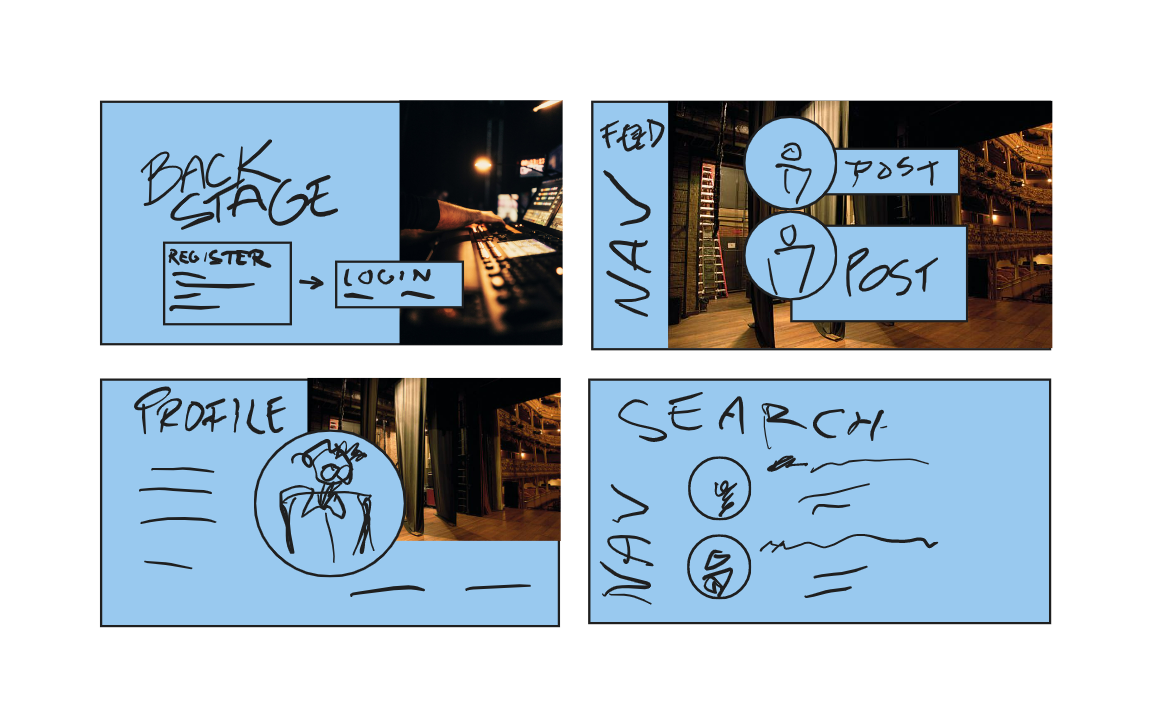 BACK
STAGE
REGISTER
LOGIN
FEED
NAV
POST
POST
PROFILE
SEARCH
NAV